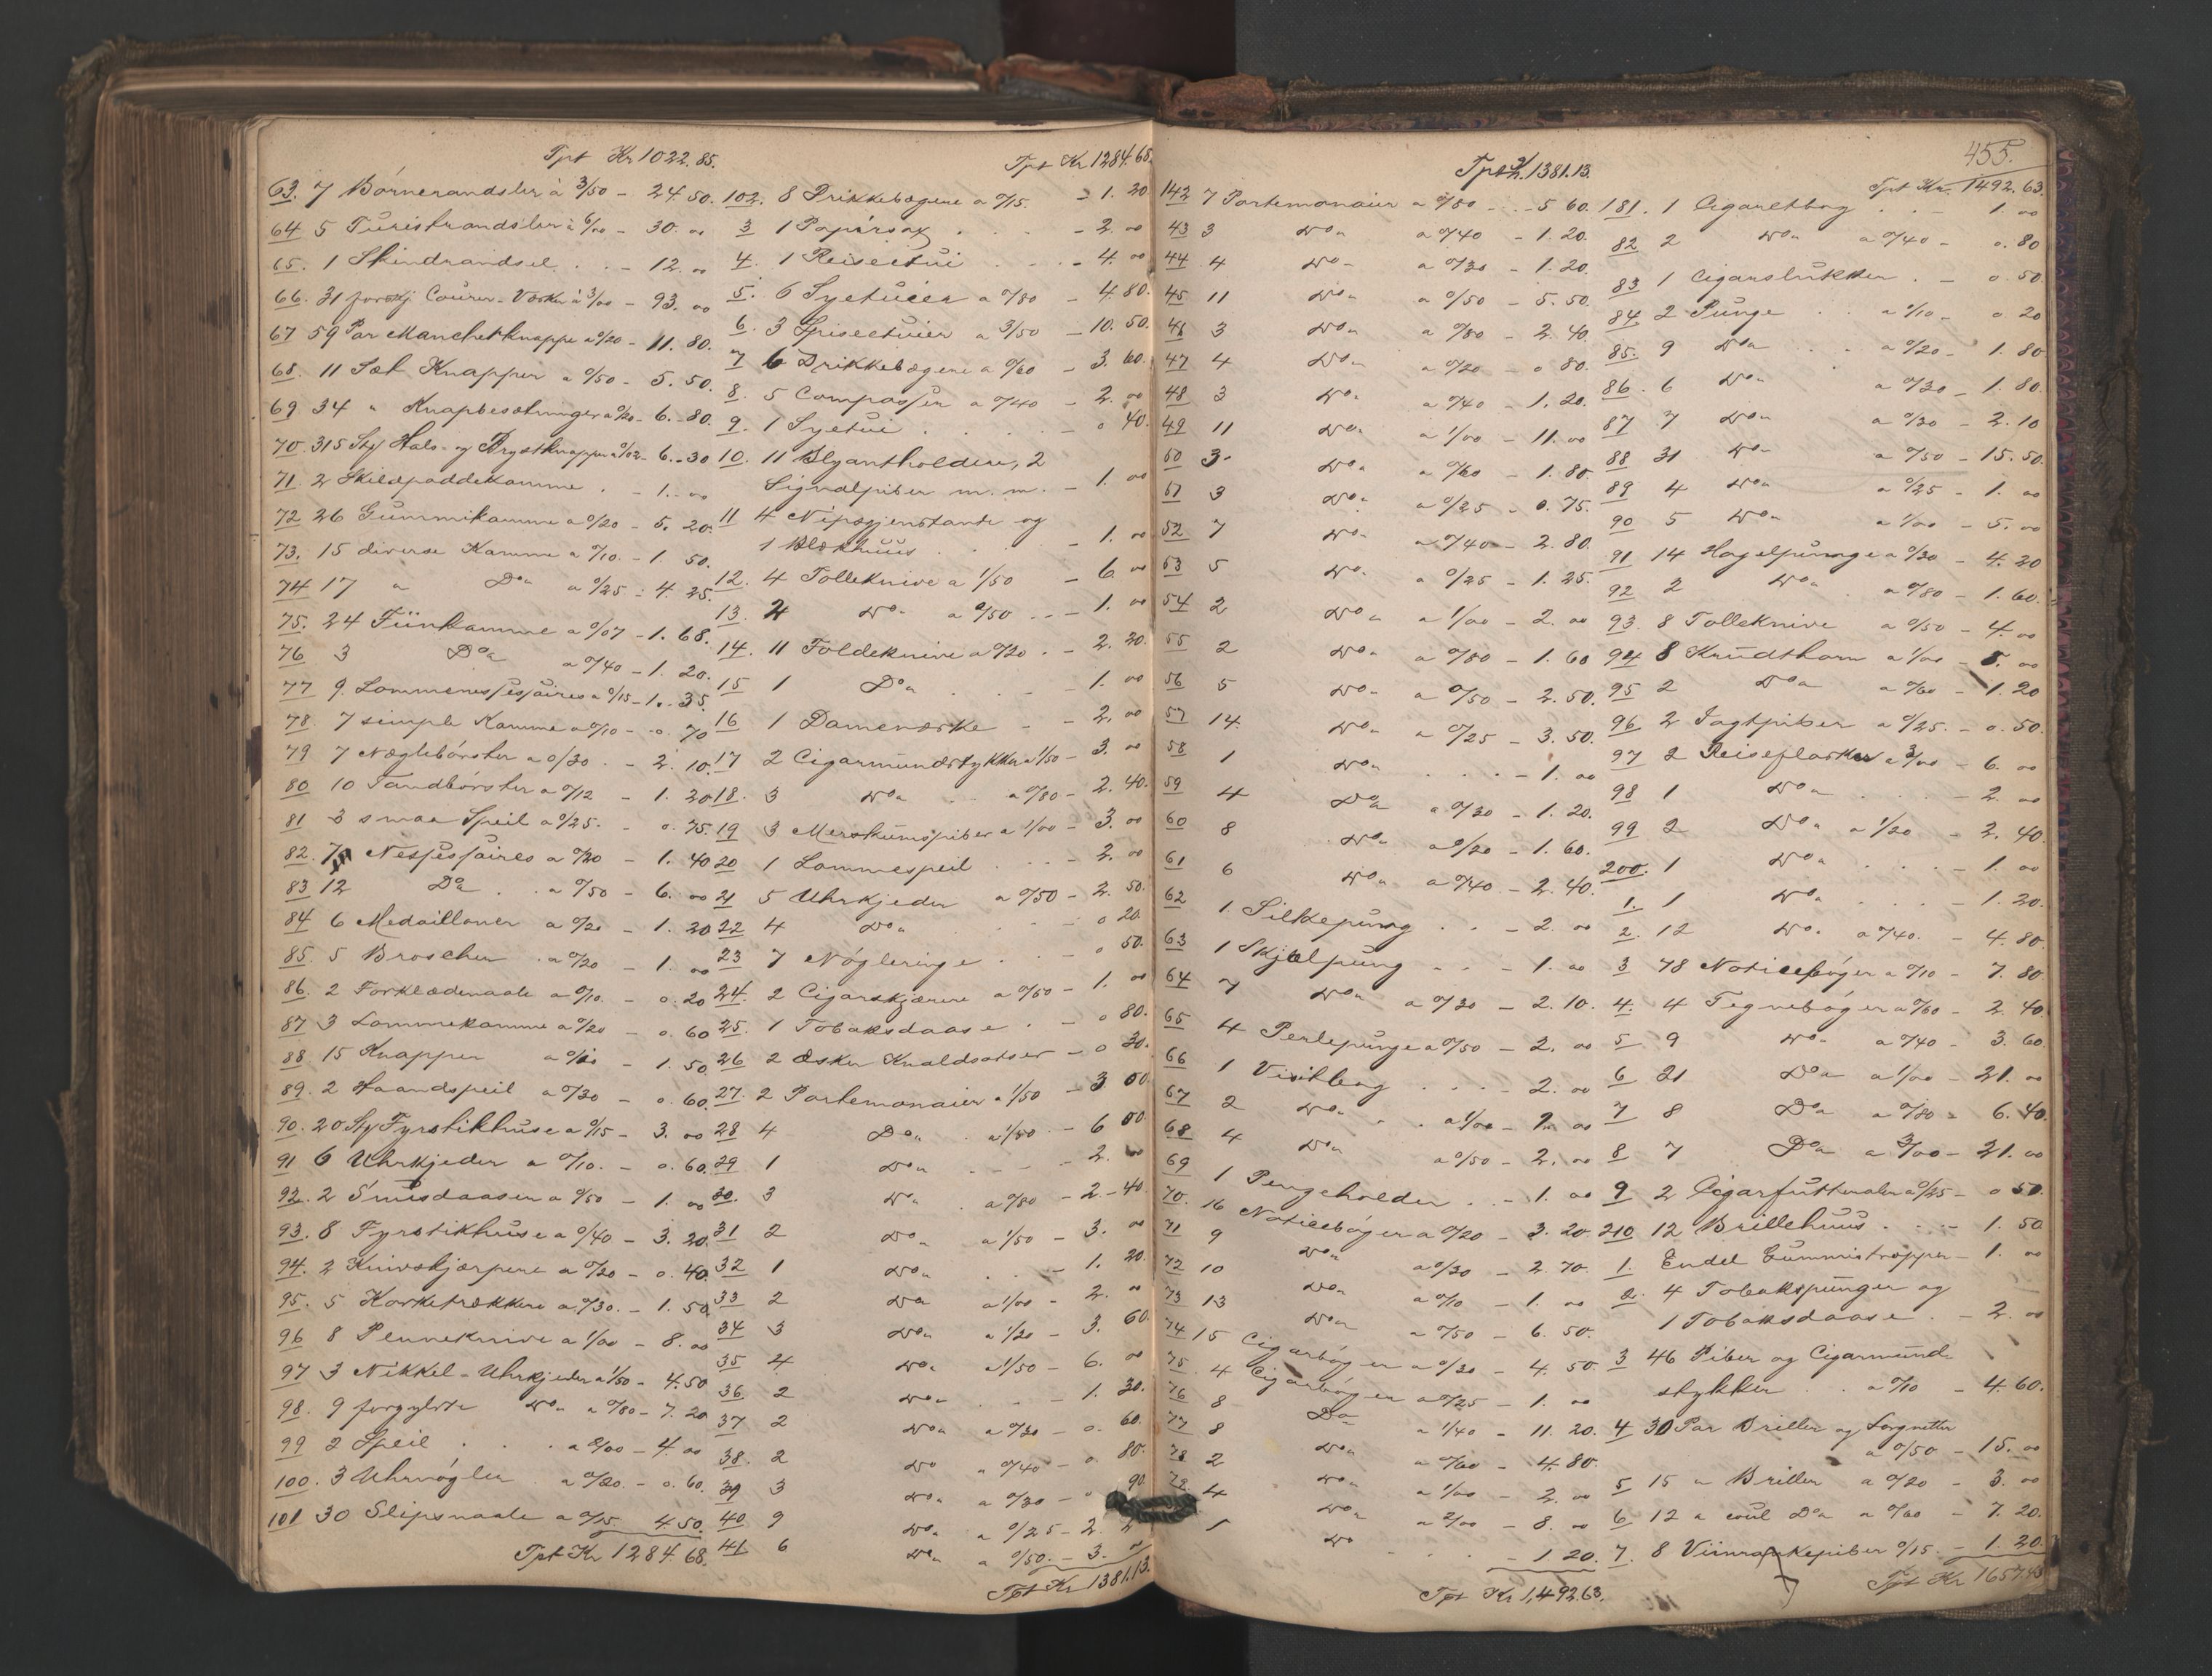 Tpt Kr 1022.85.
63. 7 Børnerandsler à 3/50 - 24.50.
64 5 Turistrandsler à 6/00 - 30. 00
65. 1 Skindrandsel . . - 12. 00
66. 31 forskj. Courer-Vesker à 3/00 - 93. 00
67 59 Par Manchetknappe a 0/20 - 11. 80.
68. 11 Sæt Knapper a 0/50 - 5. 50.
69 34 " Knapbesætninger a 0/20 - 6. 80.
70. 315 Sty Hals- og Brystknapper a 0/02 - 6. 30
71. 2 Skildpaddekamme . - 1. 00
72 26 Gummikamme a 0/20 - 5. 20.
73. 15 diverse Kamme a 0/10. - 1. 50.
74 17 " Do a 0/25 - 4. 25.
75. 24 Tünkamme a 0/07 - 1. 68.
76 3 Do a 0/40 - 1. 20.
77 9 Lommenessesaires a 0/15 - 1. 35.
78. 7 simple Kamme a 0/10 - 0. 70
79 7 Neglebørster a 0/30 . - 2. 10.
80 10 Tandbørster a 0/12 - 1. 20
81 3 smaa Speil a 0/25. - 0. 75.
82. 7 Nessesaires a 0/20 - 1. 40
83 12 Do . . a 0/50 - 6. 00
84 6 Medailloner a 0/20 - 1. 20
85. 5 Broscher . a 0/20 - 1. 00
86. 2 Forklædenaale a 0/10. - 0. 20
87 3 Lommekamme a 0/20 - 0. 60
88 15 Knapper a 0/10 - 1. 50
89. 2 Haandspeil a 0/30 - 0. 60.
90. 20 Sty Fyrstikhuse a 0/15 - 3. 00
91 6 Uhrkjeder a 0/10. - 0. 60.
92. 2 Snusdaaser a 0/50 - 1. 00
93. 8 Fyrstikhuse a 0/40 - 3. 20.
94. 2 Knivskjærpere a 0/20 - 0. 40.
95. 5 Korketrækkere a 0/30. - 1. 50.
96 8 Penneknive a 1/00 - 8. 00
97 3 Nikkel-Uhrkjeder a 1/50 - 4.50
98. 9 forgyldte Do a 0/80 - 7. 20
99 2 Speil . . . a 2/00 - 4. 00
100. 3 Uhrnøgler . a 0/20. - 0. 60.
101 30 Slipsnaale a 0/15. 4.50.
Tpt Kr 1284.68.
Tpt Kr 1284.68.
102. 8 Drikkebægere a 0/15. - 1. 20
3 1 Papirsax . . - 2. 00
4. 1 Reiseetui . . . - 4. 00
5. 6 Syetuier a 0/80 - 4.80.
6. 3 Spiseetuier a 3/50 - 10. 50.
7 6 Drikkebægere a 0/60 - 3. 60.
8. 5 Compasser a 0/40 - 2. 00
9. 1 Syetui . . . . - 0 40.
10. 11 Blyantholdere, 2
Signalpiber m. m. - 1. 00
11 4 Nipsgjenstande og
1 Blækhuus . . . - 1. 00
12. 4 Tolleknive a 1/50 - 6. 00
13. 2 Do a 0/50 . . - 1. 00
14. 11 Foldeknive a 0/20 . - 2. 20.
15 1 Do . . . - 1. 00
16 1 Dameveske - - 2. 00
17 2 Cigarmundstykker a 1/50 - 3. 00
18. 3 Do . . a 0/80 - 2. 40.
19 3 Merskumspiber a 1/00 - 3. 00
20 1 Lommespeil . . - 2. 00
21 5 Uhrkjeder a 0/50 - 2. 50.
22 4 Do . . . - 0 20.
23 7 Nøgleringe . . - 0 50.
24. 2 Cigarskjærere a 0/50 - 1. 00
25. 1 Tobaksdaase . - 0 80.
26 2 Æsker Knaldsatser - 0 30.
27. 2 Portemonaier a 1/50 - 3 00
28 4 Do . a 1/50 - 6 00.
29 1 Do - - - - 2. 00
30. 3 Do . a 0/80 - 2. 40
31 2 Do a 1/50 - 3. 00
32 1 Do . . - 1. 20.
33 2 Do a 1/00 - 2. 00
34 3 Do a 1/20 - 3. 60.
35 4 Do a 1/50 - 6. 00
36. 2 Do . . - 1. 30.
37 2 Do a 0/30 - 0. 60.
38. 2 Do a 0/40 - 0. 80.
39 3 Do a 0/30 - 0 90.
40 9 Do a 0/25 - 2.
41 6 Do a 0/50. - 3. 00
Tpt Kr 1381.13.
Tpt Kr. 1381.13.
142 7 Portemonaier a 0/80 . . - 5 60.
43 3 Do a 0/40 - 1. 20.
44 4 Do a 0/30 - 1. 20.
45 11 Do a 0/50 - 5. 50.
46 3 Do a 0/80 - 2. 40.
47 4 Do a 0/20 - 0 80.
48 3 Do a 0/40 - 1. 20.
49 11 Do a 1/00 - 11. 00
50 3 Do a 0/60 - 1. 80.
51 3 Do a 0/25 - 0. 75.
52 7 Do a 0/40 - 2. 80.
53 5 Do a 0/25 - 1. 25.
54 2 Do a 1/00 - 2. 00
55 2 Do a 0/80 - 1. 60
56 5 Do a 0/50 - 2. 50.
57 14. Do a 0/25 - 3. 50.
58 1 Do . . . - 1. 00
59 4 Do a 0/30 - 1. 20.
60 8 Do a 0/20 - 1. 60.
61 6 Do a 0/40 - 2. 40.
62 1 Silkepung . . - 2. 00
63 1 Skjælpung - - - 1. 00
64 7 Do a 0/30 - 2. 10.
65 4 Perlepunge a 0/50 - 2. 00
66 1 Visitbog . . . - 2. 00
67 2 Do . . a 1/00 - 2. 00
68 4 Do a 0/50 - 2. 00
69 1 Pengeholder . . - 1. 00
70. 16 Noticebøger a 0/20 - 3. 20.
71 9 Do a 0/30 - 2. 70.
72 10 Do a 0/10 - 1. 00
73 13 Do a 0/50 - 6. 50.
74 15 Cigarbøger a 0/30 - 4. 50.
75. 4 Cigarbøger a 0/25 - 1. 00
76 8 Do a 1/40 - 11. 20.
77 8 Do a 0/60 - 4.80.
78 2 Do a 1/00 - 2. 00
79 4 Do a 2/00 - 8. 00
1 Do - 1 20.
Tpt Kr 1,492.63.
455.
Tpt Kr. 1492.63.
181. 1 Cigaretbog . . - 1. 00
82 2 Do a 0/40 - 0. 80
83 1 Cigarslukker . - 0. 50
84 2 Punge . . a 0/10 - 0 20
85. 9 Do . . a 0/20 - 1. 80
86. 6 Do a 0/30 - 1. 80.
87 7 Do a 0/30 - 2. 10
88 31 Do a 0/50 - 15. 50.
89 4 Do a 0/25 - 1. 00
90 5 Do a 1/00 - 5. 00
91 14 Hagelpunge a 0/30 - 4. 20
92 2 Do . a 0/80 - 1. 60.
93. 8 Tolleknive a 0/50 - 4. 00
94 8 Krudthorn a 1/00 - 8. 00
95 2 Do a 0/60 - 1. 20
96 2 Jagtpiber a 0/25. - 0. 50.
97 2 Reiseflasker a 3/00 - 6. 00
98 1 Do . . . . - 2. 00
99 2 Do a 1/20 - 2. 40.
200. 1 Do . . . - 1. 00
1. 1 Do . . . - 1. 20.
2. 12 Do a 0/40. - 4. 80.
3 78 Noticebøger a 0/10 - 7. 80
4. 4 Tegnebøger a 0/60 - 2. 40
5 9 Do a 0/40 - 3. 60
6 21 Do a 1/00 - 21. 00
7 8 Do a 0/80 - 6. 40.
8 7 Do a 3/00 - 21. 00
9 2 Cigarfutteraler a 0/25 - 0 50.
210 12 Brillehuus . . . - 1. 50
1. Endel Gummistropper - 1. 00
2. 4 Tobakspunger og
1 Tobaksdaase . - 2. 00
3 46 Piber og Cigarmund-
stykker . . a 0/10 - 4.60.
4 30 Par Briller og Lorgnetter
a 0/50 - 15. 00
5 15 " Briller a 0/20 - 3. 00
6 12 " coul Do a 0/60 - 7. 20.
7. 8 Viinrankepiber 0/15. - 1. 20.
Tpt Kr 1657.43